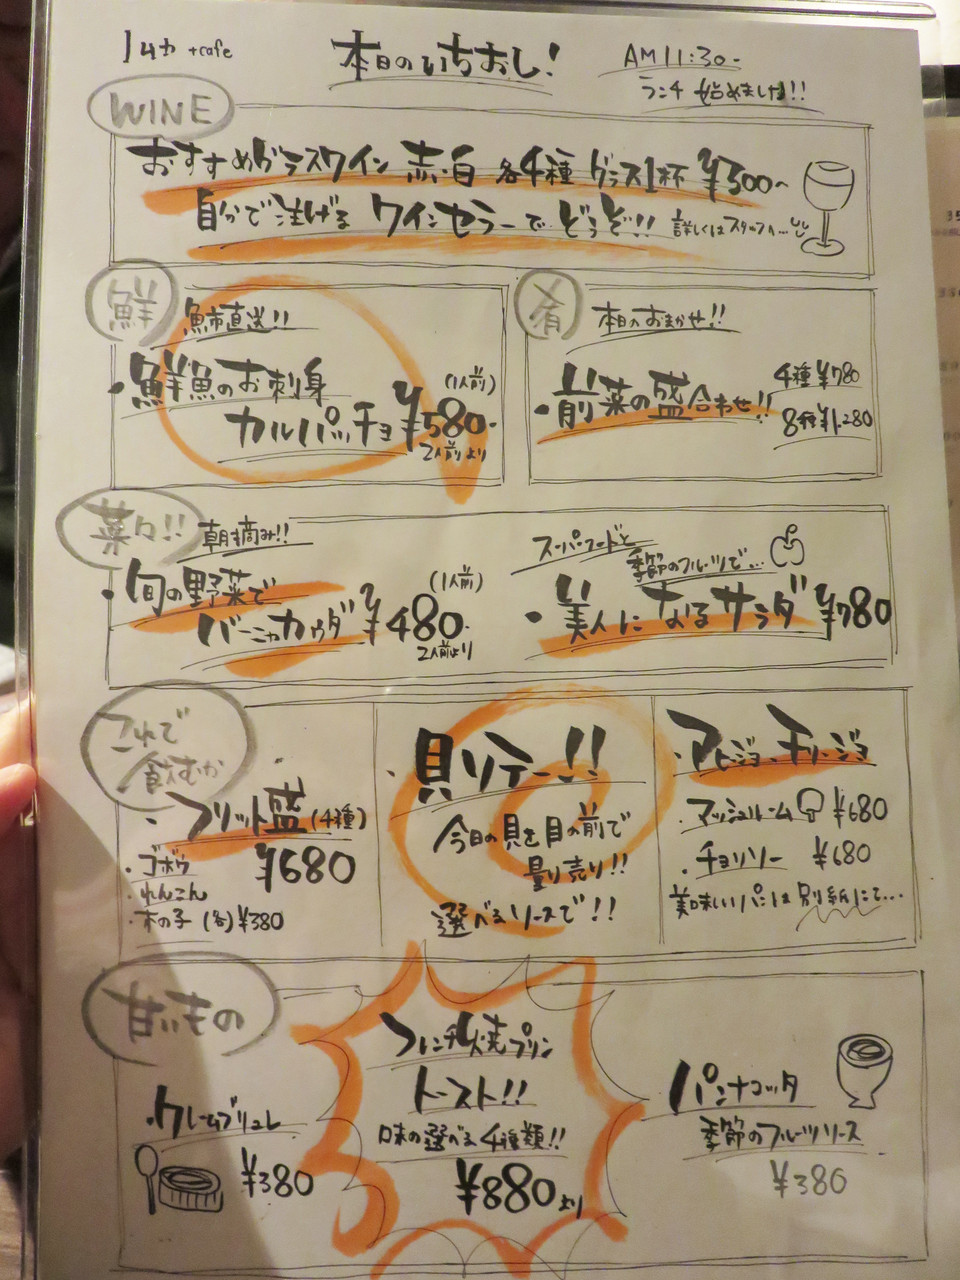 +cafe
本日のいちおし!
AM11:30-
ランチ 始めました!!
WINE
おすすめグラスワイン 赤・白 各4種 グラス1杯 ¥300〜
自分で注げる ワインセラーで どうぞ!! 詳しくはスタッフへ...
鮮
魚市直送!!
・鮮魚のお刺身
カルパッチョ ¥580-
(1人前)
2人前より
肴
本日のおまかせ!!
・前菜の盛合わせ!!
4種 ¥780
8種 ¥1,280
菜々!!
朝摘み!!
・旬の野菜で
バーニャカウダ ¥480-
(1人前)
2人前より
スーパーフードと
季節のフルーツで...
・美人になるサラダ ¥780
これで
飲むか
・フリット盛 (4種)
¥680
・ゴボウ
・れんこん
・木の子 (各) ¥380
・貝リテー!!
今日の貝を目の前で
量り売り!!
選べるソースで!!
・アヒージョ、チリージョ
・マッシュルーム ¥680
・チョリソー ¥680
美味しいパンは別紙にて...
甘いもの
・クレームブリュレ
¥380
フレンチ焼プリン
トースト!!
味の選べる4種類!!
¥880より
パンナコッタ
季節のフルーツソース
¥380